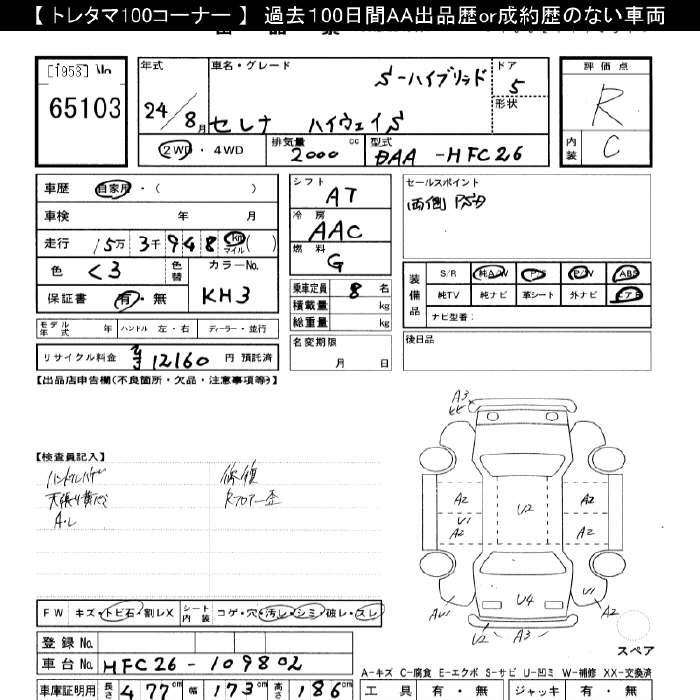 【 トレタマ100コーナー 】 過去100日間AA出品歴or成約歴のない車両
[1953] No
65103
年式 車名・グレード ドア 評価点
S-ハイブリッド 5 R
24/8月 セレナ ハイウェイS 形状
2WD・4WD 排気量 2000 cc 型式 DAA -HFC26 内装 C
車歴 自家用・( )
車検 年 月
走行 15万 3千 948 km マイル ( )
色 くろ 色替 カラーNo. KH3
保証書 有・無
モデル年式 年 ハンドル 左・右 ディーラー・並行
リサイクル料金 12160 円 預託済
シフト AT
冷房 AAC
燃料 G
乗車定員 8 名
積載量 kg
総重量 kg
名変期限 月 日
セールスポイント
両側 PSD
装備品 S/R 純A/W P/S P/W ABS
純TV 純ナビ 革シート 外ナビ エアB
ナビ型番:
後日品
【出品店申告欄(不良箇所・欠品・注意事項等)】
【検査員記入】
A・L
修復
FW キズ・トビ石・割レX シート内装 コゲ・穴・汚レ・シミ・破レ・スレ
登録 No.
車台 No. HFC26 - 109802
車庫証明用 長さ 477cm 幅 173cm 高さ 186cm
A3
A2 U2 A2
U1 A2 A2
A2
U4 U1
A2
U2 A3
スペア
A-キズ C-腐食 E-エクボ S-サビ U-凹ミ W-補修 XX-交換済
工具 有・無 ジャッキ 有・無